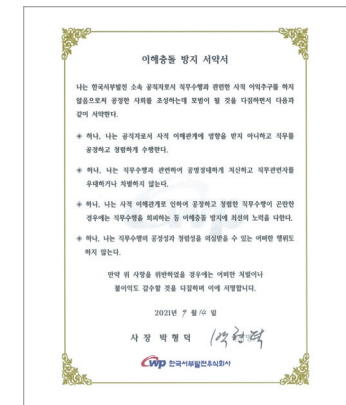 이해충돌 방지 서약서
나는 한국서부발전 소속 공직자로서 직무수행과 관련한 사적 이익추구를 하지
않음으로써 공정한 사회를 조성하는데 모범이 될 것을 다짐하면서 다음과
같이 서약한다.
※ 하나, 나는 공직자로서 사적 이해관계에 영향을 받지 아니하고 직무를
공정하고 청렴하게 수행한다.
※ 하나, 나는 직무수행과 관련하여 공명정대하게 처신하고 직무관련자를
우대하거나 차별하지 않는다.
※ 하나, 나는 사적 이해관계로 인하여 공정하고 청렴한 직무수행이 곤란한
경우에는 직무수행을 회피하는 등 이해충돌 방지에 최선의 노력을 다한다.
※ 하나, 나는 직무수행의 공정성과 청렴성을 의심받을 수 있는 어떠한 행위도
하지 않는다.
만약 위 사항을 위반하였을 경우에는 어떠한 처벌이나
불이익도 감수할 것을 다짐하며 이에 서명합니다.
2021년 9월 14일
사 장 박 형 덕 박형덕
WP 한국서부발전주식회사